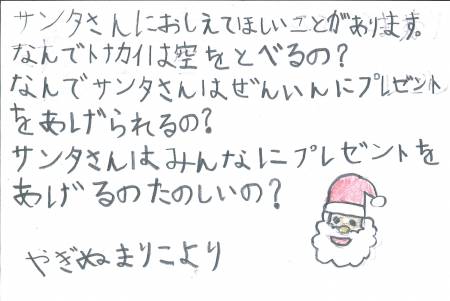 サンタさんにおしえてほしいことがあります。
なんでトナカイは空をとべるの?
なんでサンタさんはぜんいんにプレゼント
をあげられるの?
サンタさんはみんなにプレゼントを
あげるのたのしいの?
やぎぬまりこより